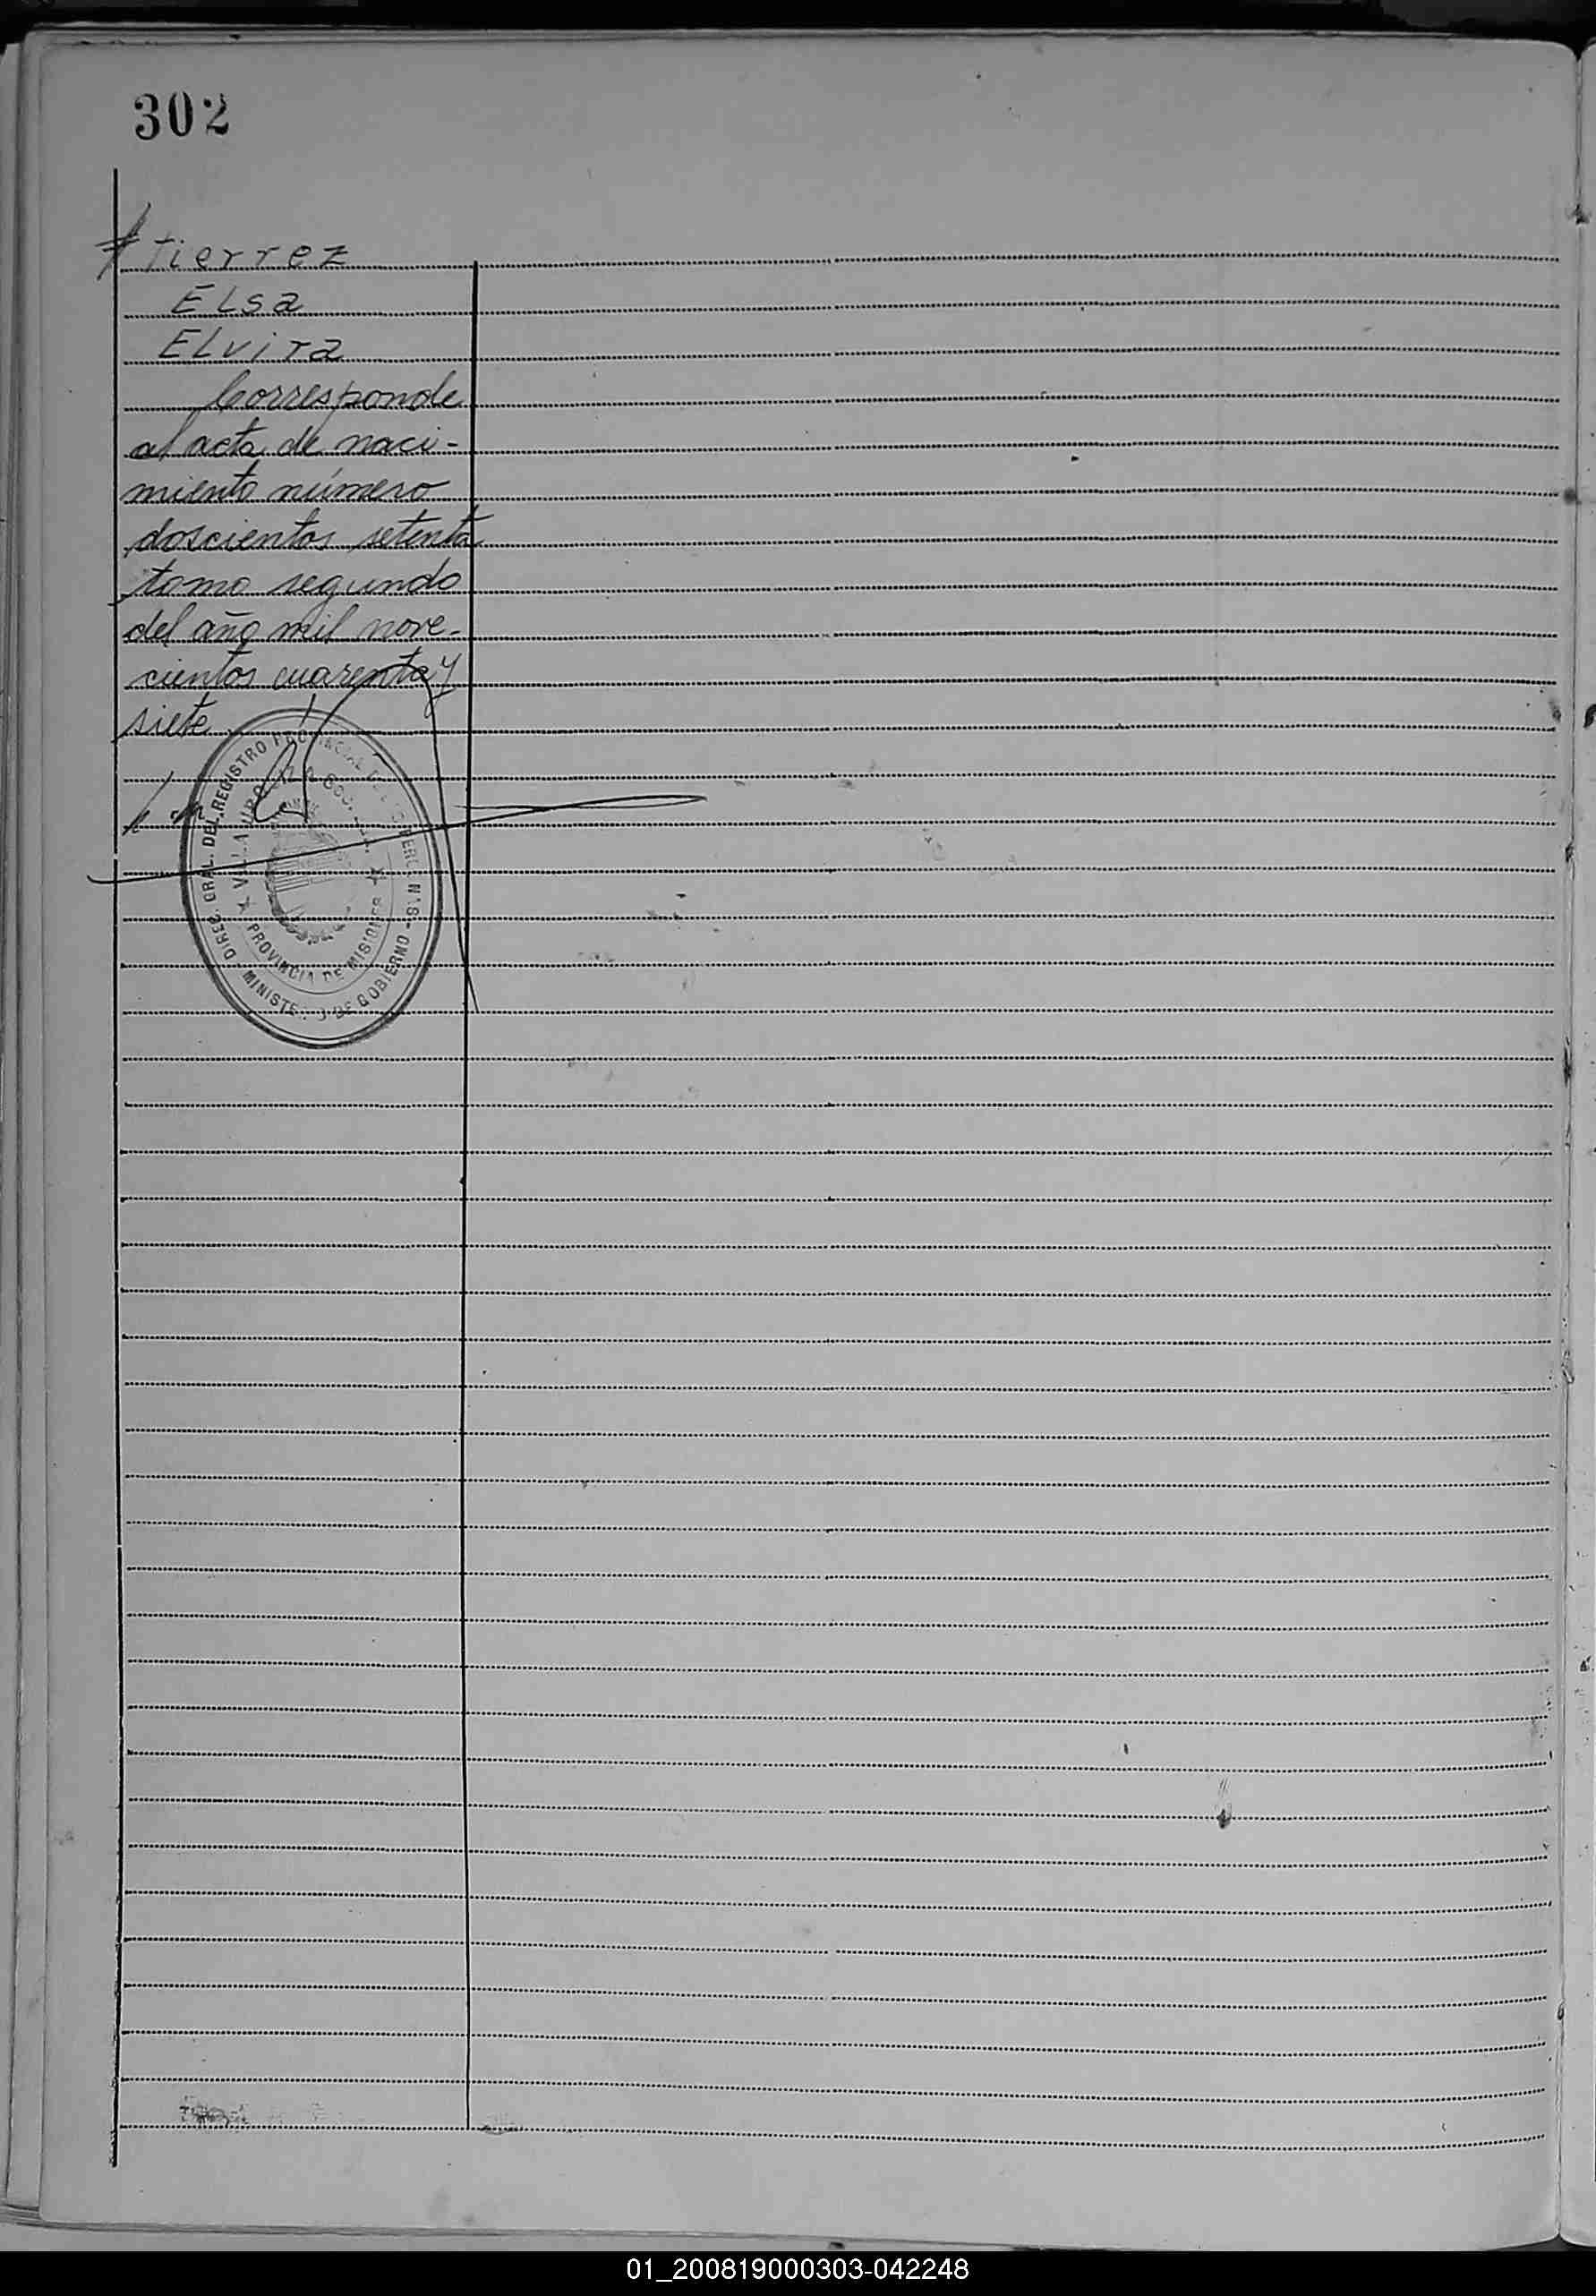 302
tierrez
Elsa
Elvira
Corresponde
al acta de naci-
miento número
doscientos setenta
tomo segundo
del año mil nove-
cientos cuarenta y
siete
DIREC. GRAL. DEL REGISTRO PROVINCIAL DE
MINISTERIO DE GOBIERNO
PROVINCIA DE MISIONES
01_200819000303-042248